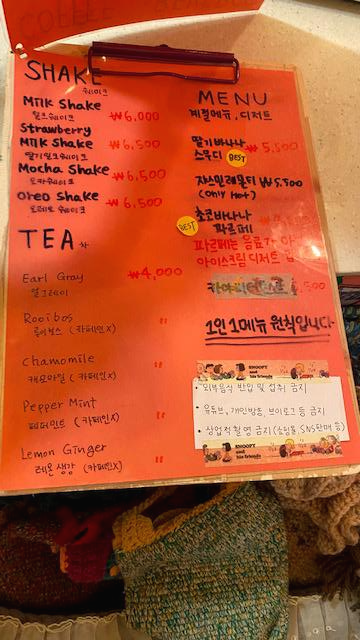 SHAKE
쉐이크
Milk Shake
밀크쉐이크
₩6,000
Strawberry
Milk Shake
딸기밀크쉐이크
₩6,500
Mocha Shake
모카쉐이크
₩6,500
Oreo Shake
오레오 쉐이크
₩6,500
TEA 차
Earl Gray
얼그레이
₩4,000
Rooibos
루이보스 (카페인X)
"
Chamomile
캐모마일 (카페인X)
"
Pepper Mint
페퍼민트 (카페인X)
"
Lemon Ginger
레몬생강 (카페인X)
"
MENU
계절메뉴, 디저트
딸기바나나
스무디 BEST ₩5,800
자스민레몬티 ₩5,500
(only Hot)
BEST 초코바나나
파르페
파르페는 음료가 아
아이스크림 디저트
,500
1인 1메뉴 원칙입니다
SNOOPY
and
his friends
• 외부음식 반입 및 섭취 금지
• 유튜브, 개인방송, 브이로그 등 금지
• 상업적 촬영 금지 (쇼핑몰, SNS판매 등)
SNOOPY
and
his friends